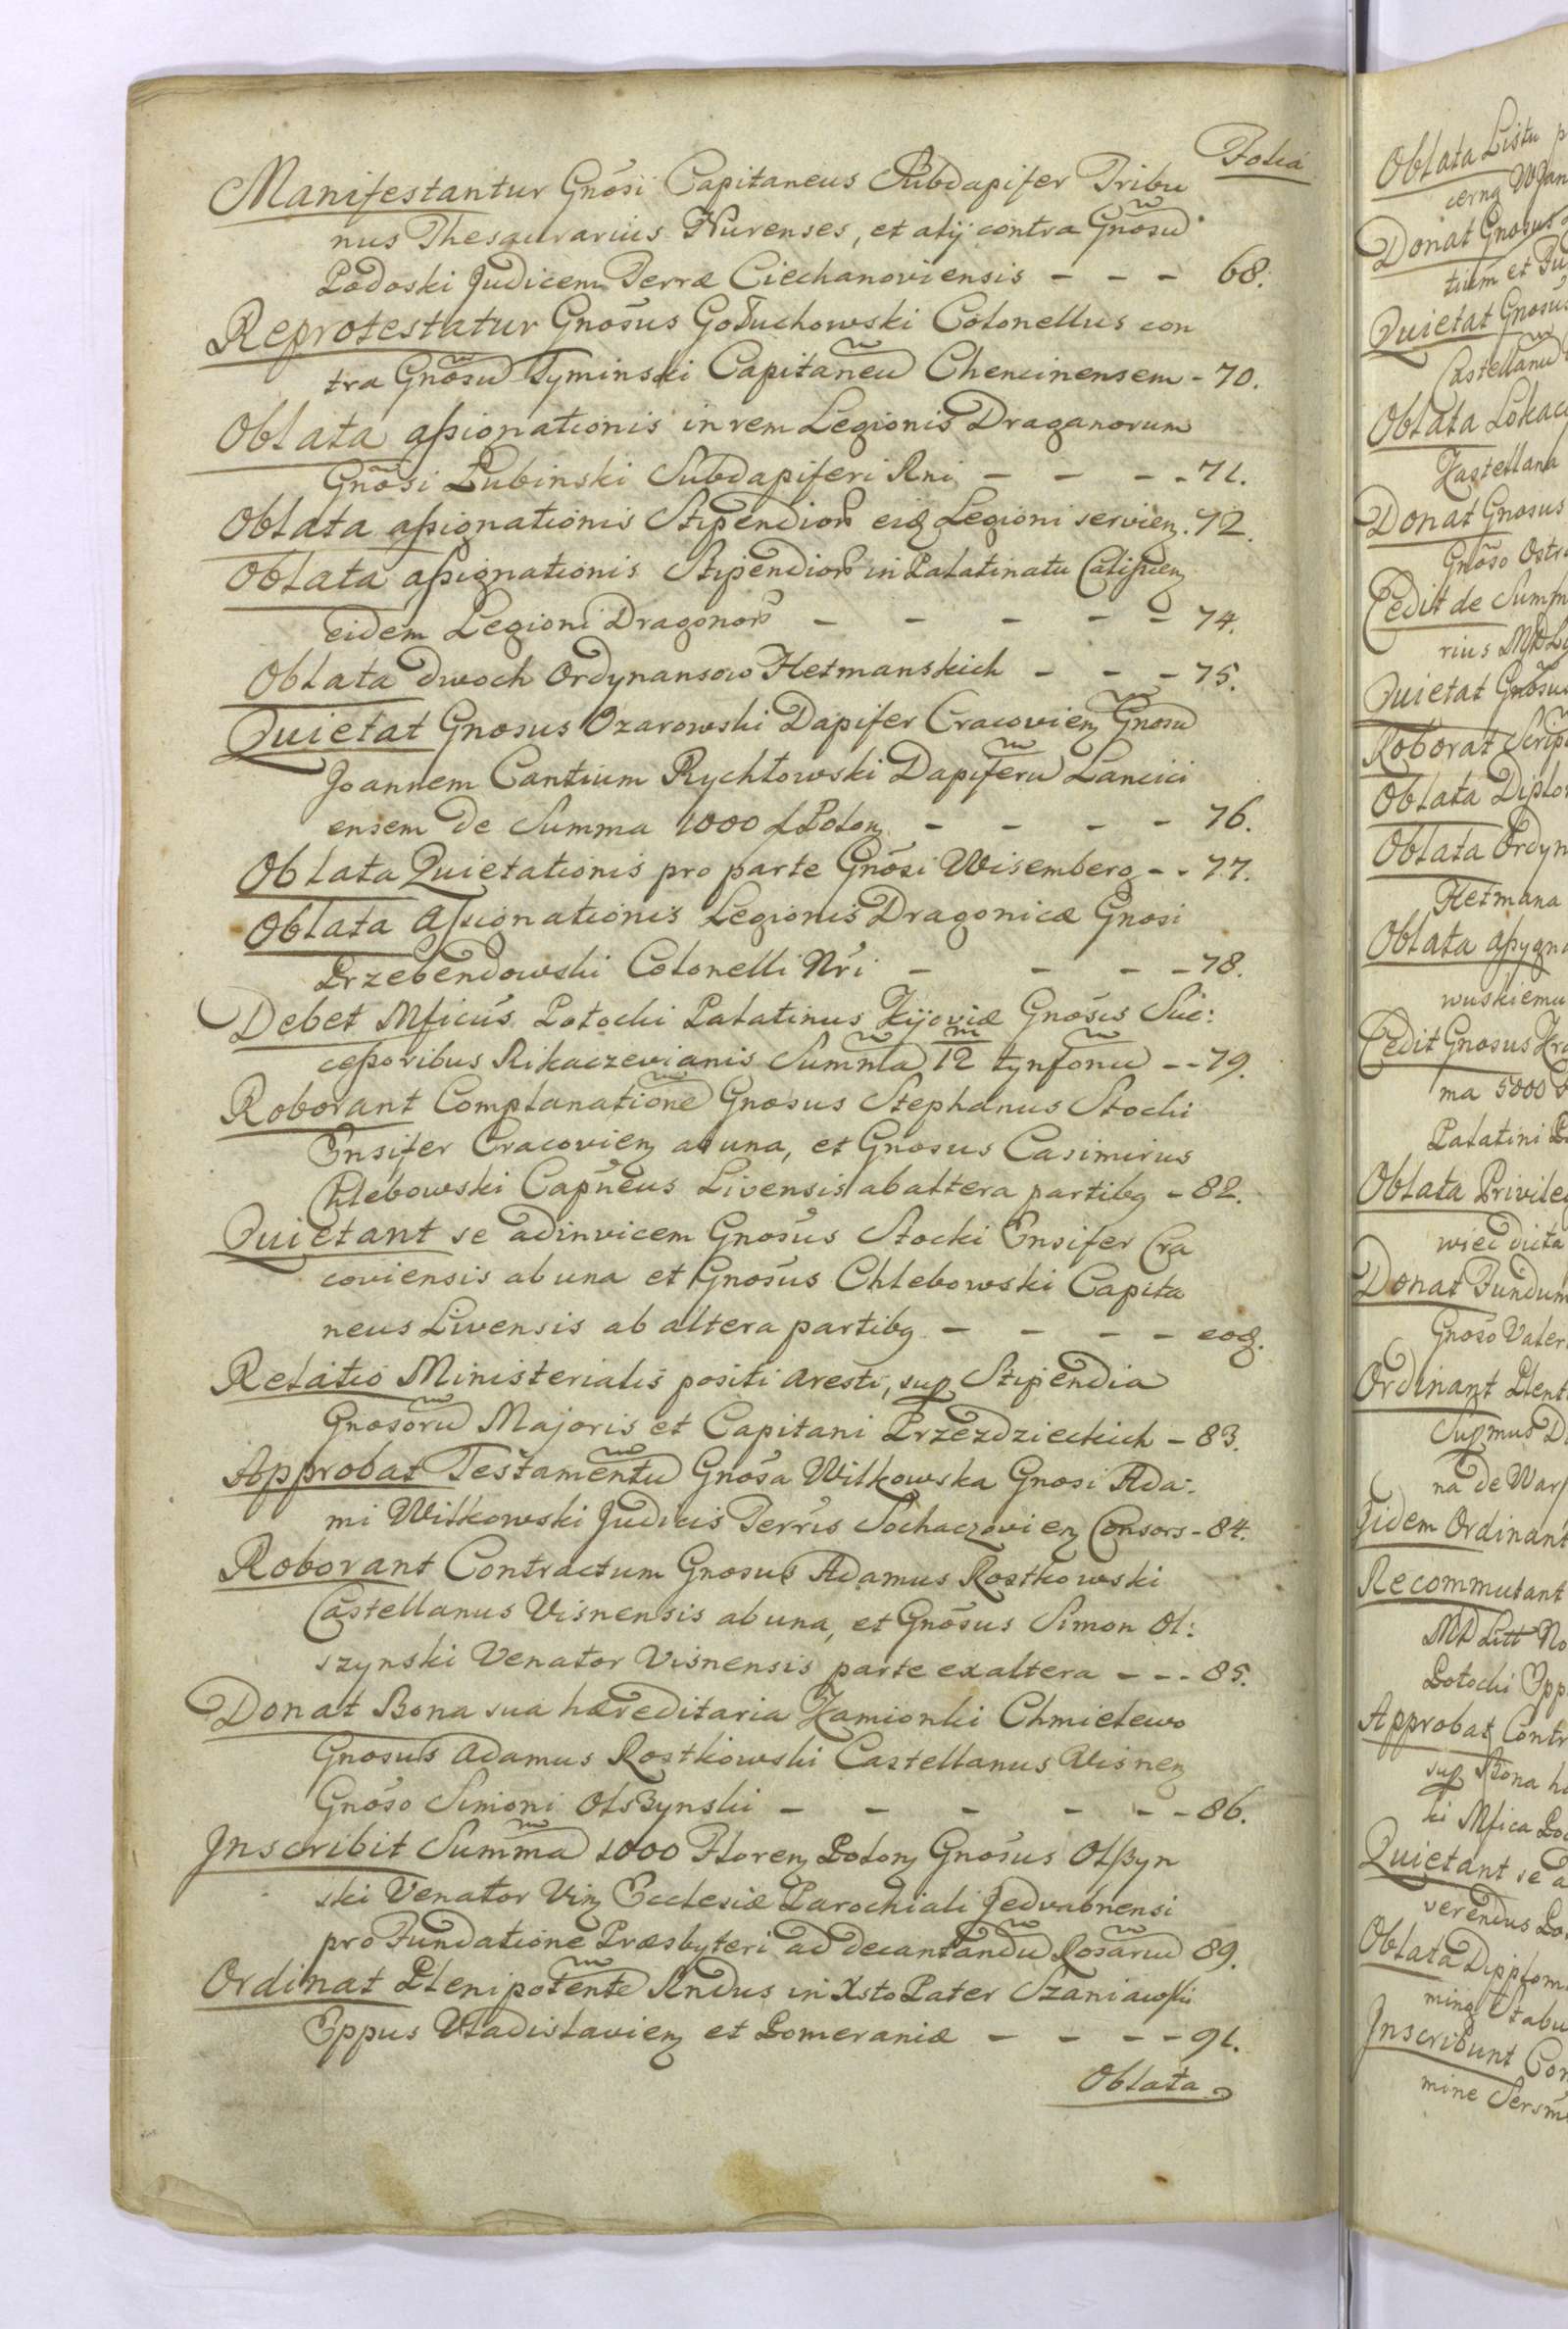 Folia
Manifestantur Gnosi Capitaneus Subdapifer Tribu
nus Thesaurarius Nurenses, et alij contra Gnosu
Podoski Judicem Terræ Ciechanoviensis - - - 68.
Reprotestatur Gnosus Gołuchowski Colonellus con
tra Gnosu Tyminski Capitaneu Chencinensem - 70.
Oblata assignationis in rem Legionis Draganorum
Gnosi Lubinski Subdapiferi Rni - - - - 71.
Oblata assignationis Stipendior eid Legioni servien. 72.
Oblata assignationis Stipendior in Palatinatu Calissien
eidem Legioni Dragonor - - - - - 74.
Oblata dwoch Ordynansow Hetmanskich - - - 75.
Quietat Gnosus Ozarowski Dapifer Cracovien Gnosu
Joannem Cantium Rychłowski Dapiferu Lancici
ensem de Summa 1000 f Polon - - - - 76.
Oblata Quietationis pro parte Gnosi Wisemberg - - 77.
Oblata Assignationis Legionis Dragonicæ Gnosi
Przebendowski Colonelli Nri - - - - 78.
Debet Mficus Potocki Palatinus Kijoviæ Gnosis Suc:
cessoribus Rikaczevianis Summa 12 tynfonu - - 79.
Roborant Complanatione Gnosus Stephanus Stocki
Ensifer Cracovien ab una, et Gnosus Casimirus
Chlebowski Capneus Livensis ab altera partibq - 82.
Quietant se adinvicem Gnosus Stocki Ensifer Cra
coviensis ab una et Gnosus Chlebowski Capita
neus Livensis ab altera partibq - - - - eod.
Relatio Ministerialis positi aresti, sup Stipendia
Gnosoru Majoris et Capitani Przezdzieckich - 83.
Approbat Testamentu Gnosa Wilkowska Gnosi Ada:
mi Wilkowski Judicis Terris Sochaczovien Consors - 84.
Roborant Contractum Gnosus Adamus Rostkowski
Castellanus Visnensis ab una, et Gnosus Simon Ol:
szynski Venator Visnensis parte ex altera - - - 85.
Donat Bona sua hæreditaria Kamionki Chmielewo
Gnosus Adamus Rostkowski Castellanus Visnen
Gnoso Simoni Olszynski - - - - - - 86.
Inscribit Summa 1000 Floren Polon Gnosus Olszyn
ski Venator Vin Ecclesiæ Parochiali Jedvabnensi
pro Fundatione Præsbyteri ad decantandu Rosariu 89.
Ordinat Plenipotente Rndus in Xsto Pater Szaniawski
Eppus Vladislavien et Pomeraniæ - - - - 91.
Oblata
Oblata Listu
Donat Gnosus
Quietat Gnosus
Castellanu
Oblata
Kastellana
Donat Gnosus
Gnoso
Cedit de Summ
Quietat Gnosus
Roborat
Oblata
Oblata
Hetmana
Oblata
wuskiemu
Cedit Gnosus
ma 5000
Palatini
Oblata
Donat Fundum
Gnoso
Ordinant
na de
Iidem Ordinant
Recommutant
Potocki
Approbat
sup Bona
ki Mfica
Quietant se
Oblata
Inscribunt
mine